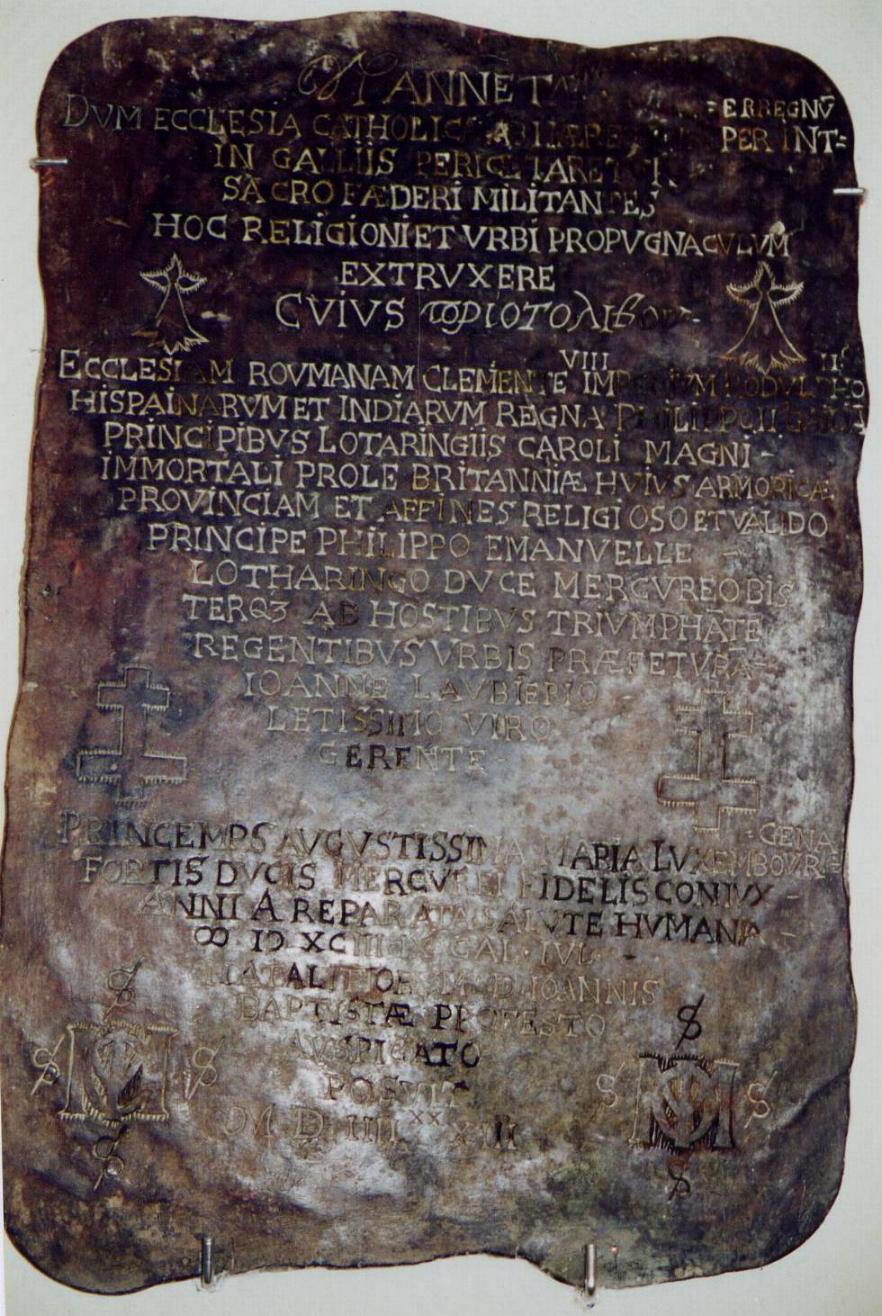 ANNET
ERREGNV̄
DVM ECCLESIA CATHOLICA AB HÆRE PER INT=
IN GALLIIS PERICLITARETVR
SACRO FÆDERI MILITANTES
HOC RELIGIONI ET VRBI PROPVGNACVLVM
EXTRVXERE
CVIVS
VIII II
ECCLESIAM ROVMANAM CLEMENTE IMPERIVM RODVLPHO
HISPAINARVM ET INDIARVM REGNA PHILIPPO II
PRINCIPIBVS LOTARINGIIS CAROLI MAGNI -
IMMORTALI PROLE BRITANNIÆ HVIVS ARMORICÆ
PROVINCIAM ET AFFINES RELIGIOSO ET VALIDO
PRINCIPE PHILIPPO EMANVELLE -
LOTHARINGO DVCE MERCVREO BIS
TERQ3 AB HOSTIBVS TRIVMPHĀTE
REGENTIBVS VRBIS PRÆFETVRĀ
IOANNE LAVBIERIO
LETISSIMO VIRO
GERENTE -
GENA
PRINCEMPS AVGVSTISSIMA MARIA LVXEMBOVR=
FORTIS DVCIS MERCVREI FIDELIS CONIVX -
ANNI A REPARATA SALVTE HVMANA -
XCIIII IX CAL · IVL -
NATALITIORVM D IOANNIS
BAPTISTÆ PROFESTO
AVSPICATO
POSVIT
M D IIII XX XIIII